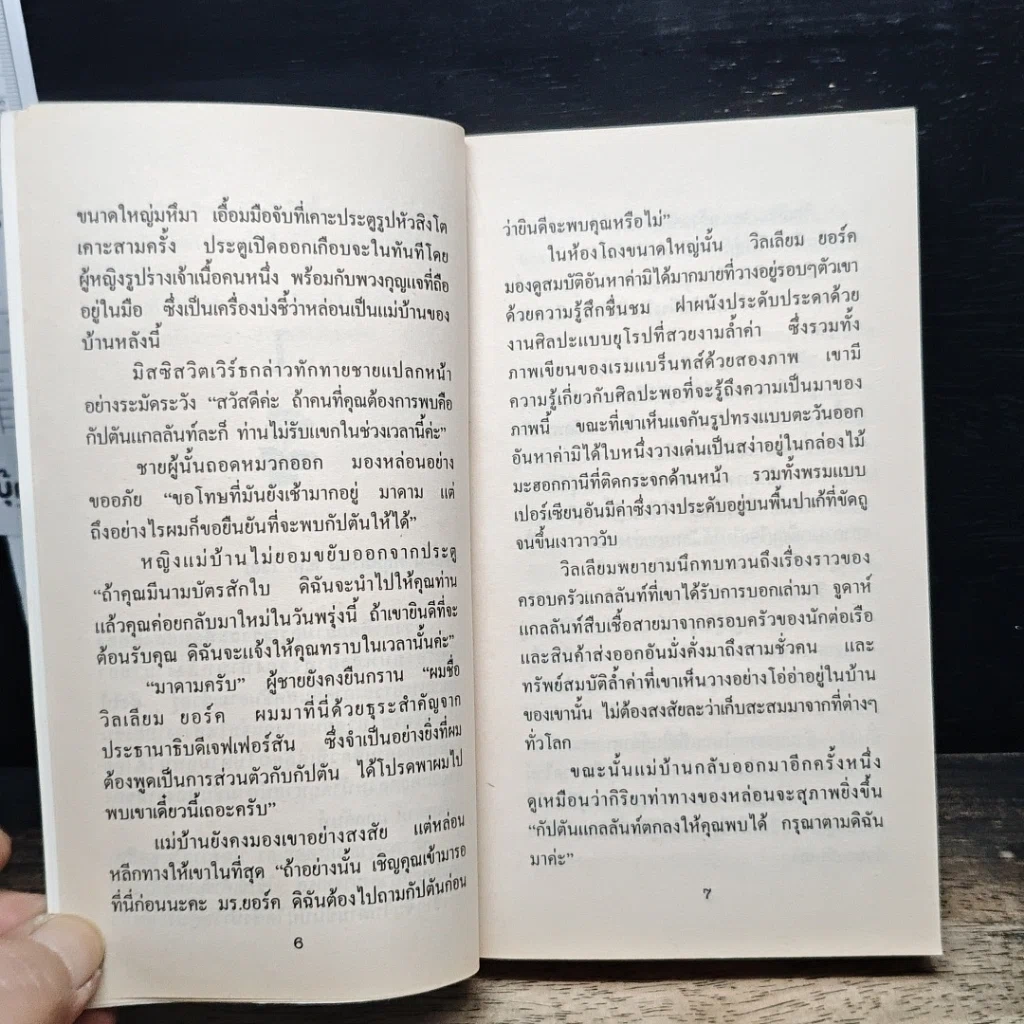 ขนาดใหญ่มหึมา เอื้อมมือจับที่เคาะประตูรูปหัวสิงโต
เคาะสามครั้ง ประตูเปิดออกเกือบจะในทันทีโดย
ผู้หญิงรูปร่างเจ้าเนื้อคนหนึ่ง พร้อมกับพวงกุญแจที่ถือ
อยู่ในมือ ซึ่งเป็นเครื่องบ่งชี้ว่าหล่อนเป็นแม่บ้านของ
บ้านหลังนี้
มิสซิสวิตเวิร์ธกล่าวทักทายชายแปลกหน้า
อย่างระมัดระวัง “สวัสดีค่ะ ถ้าคนที่คุณต้องการพบคือ
กัปตันแกลลันท์ละก็ ท่านไม่รับแขกในช่วงเวลานี้ค่ะ”
ชายผู้นั้นถอดหมวกออก มองหล่อนอย่าง
ขออภัย “ขอโทษที่มันยังเช้ามากอยู่ มาดาม แต่
ถึงอย่างไรผมก็ขอยืนยันที่จะพบกัปตันให้ได้”
หญิงแม่บ้านไม่ยอมขยับออกจากประตู
“ถ้าคุณมีนามบัตรสักใบ ดิฉันจะนำไปให้คุณท่าน
แล้วคุณค่อยกลับมาใหม่ในวันพรุ่งนี้ ถ้าเขายินดีที่จะ
ต้อนรับคุณ ดิฉันจะแจ้งให้คุณทราบในเวลานั้นค่ะ”
“มาดามครับ” ผู้ชายยังคงยืนกราน “ผมชื่อ
วิลเลียม ยอร์ค ผมมาที่นี่ด้วยธุระสำคัญจาก
ประธานาธิบดีเจฟเฟอร์สัน ซึ่งจำเป็นอย่างยิ่งที่ผม
ต้องพูดเป็นการส่วนตัวกับกัปตัน ได้โปรดพาผมไป
พบเขาเดี๋ยวนี้เถอะครับ”
แม่บ้านยังคงมองเขาอย่างสงสัย แต่หล่อน
หลีกทางให้เขาในที่สุด “ถ้าอย่างนั้น เชิญคุณเข้ามารอ
ที่นี่ก่อนนะคะ มร.ยอร์ค ดิฉันต้องไปถามกัปตันก่อน
6
ว่ายินดีจะพบคุณหรือไม่”
ในห้องโถงขนาดใหญ่นั้น วิลเลียม ยอร์ค
มองดูสมบัติอันหาค่ามิได้มากมายที่วางอยู่รอบๆตัวเขา
ด้วยความรู้สึกชื่นชม ฝาผนังประดับประดาด้วย
งานศิลปะแบบยุโรปที่สวยงามล้ำค่า ซึ่งรวมทั้ง
ภาพเขียนของเรมแบร็นทส์ด้วยสองภาพ เขามี
ความรู้เกี่ยวกับศิลปะพอที่จะรู้ถึงความเป็นมาของ
ภาพนี้ ขณะที่เขาเห็นแจกันรูปทรงแบบตะวันออก
อันหาค่ามิได้ใบหนึ่งวางเด่นเป็นสง่าอยู่ในกล่องไม้
มะฮอกกานีที่ติดกระจกด้านหน้า รวมทั้งพรมแบบ
เปอร์เซียนอันมีค่าซึ่งวางประดับอยู่บนพื้นปาเก้ที่ขัดถู
จนขึ้นเงาวาววับ
วิลเลียมพยายามนึกทบทวนถึงเรื่องราวของ
ครอบครัวแกลลันท์ที่เขาได้รับการบอกเล่ามา จูดาห์
แกลลันท์สืบเชื้อสายมาจากครอบครัวของนักต่อเรือ
และสินค้าส่งออกอันมั่งคั่งมาถึงสามชั่วคน และ
ทรัพย์สมบัติล้ำค่าที่เขาเห็นวางอย่างโอ่อ่าอยู่ในบ้าน
ของเขานั้น ไม่ต้องสงสัยละว่าเก็บสะสมมาจากที่ต่างๆ
ทั่วโลก
ขณะนั้นแม่บ้านกลับออกมาอีกครั้งหนึ่ง
ดูเหมือนว่ากิริยาท่าทางของหล่อนจะสุภาพยิ่งขึ้น
“กัปตันแกลลันท์ตกลงให้คุณพบได้ กรุณาตามดิฉัน
มาค่ะ”
7